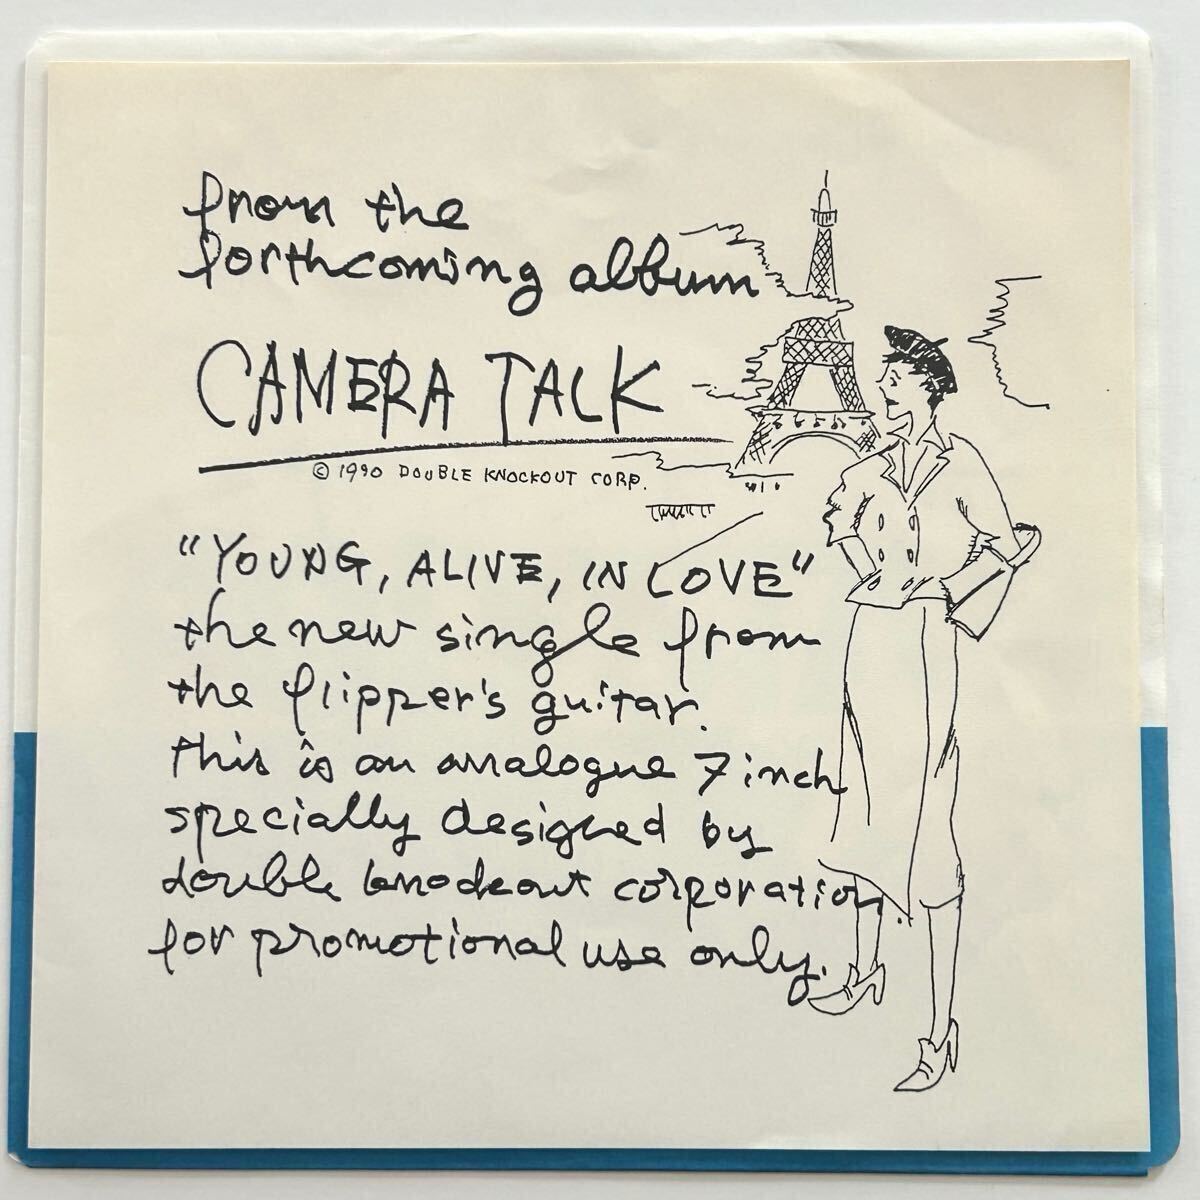 from the
forthcoming album
CAMERA TALK
© 1990 DOUBLE KNOCKOUT CORP.
"YOUNG, ALIVE, IN LOVE"
the new single from
the flipper's guitar.
this is an analogue 7 inch
specially designed by
double knockout corporation
for promotional use only.